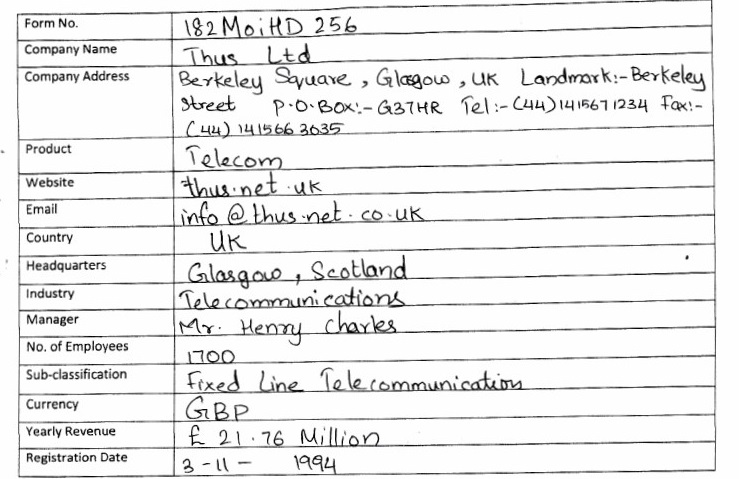 Form No. 182MoiHD 256
Company Name Thus Ltd
Company Address Berkeley Square, Glasgow, UK Landmark:- Berkeley
Street P.O.BOX:- G37HR Tel:- (44)1415671234 Fax:-
(44) 1415663635
Product Telecom
Website thus.net.uk
Email info@thus.net.co.uk
Country UK
Headquarters Glasgow, Scotland
Industry Telecommunications
Manager Mr. Henry Charles
No. of Employees 1700
Sub-classification Fixed Line Telecommunication
Currency GBP
Yearly Revenue £ 21.76 Million
Registration Date 3-11- 1994